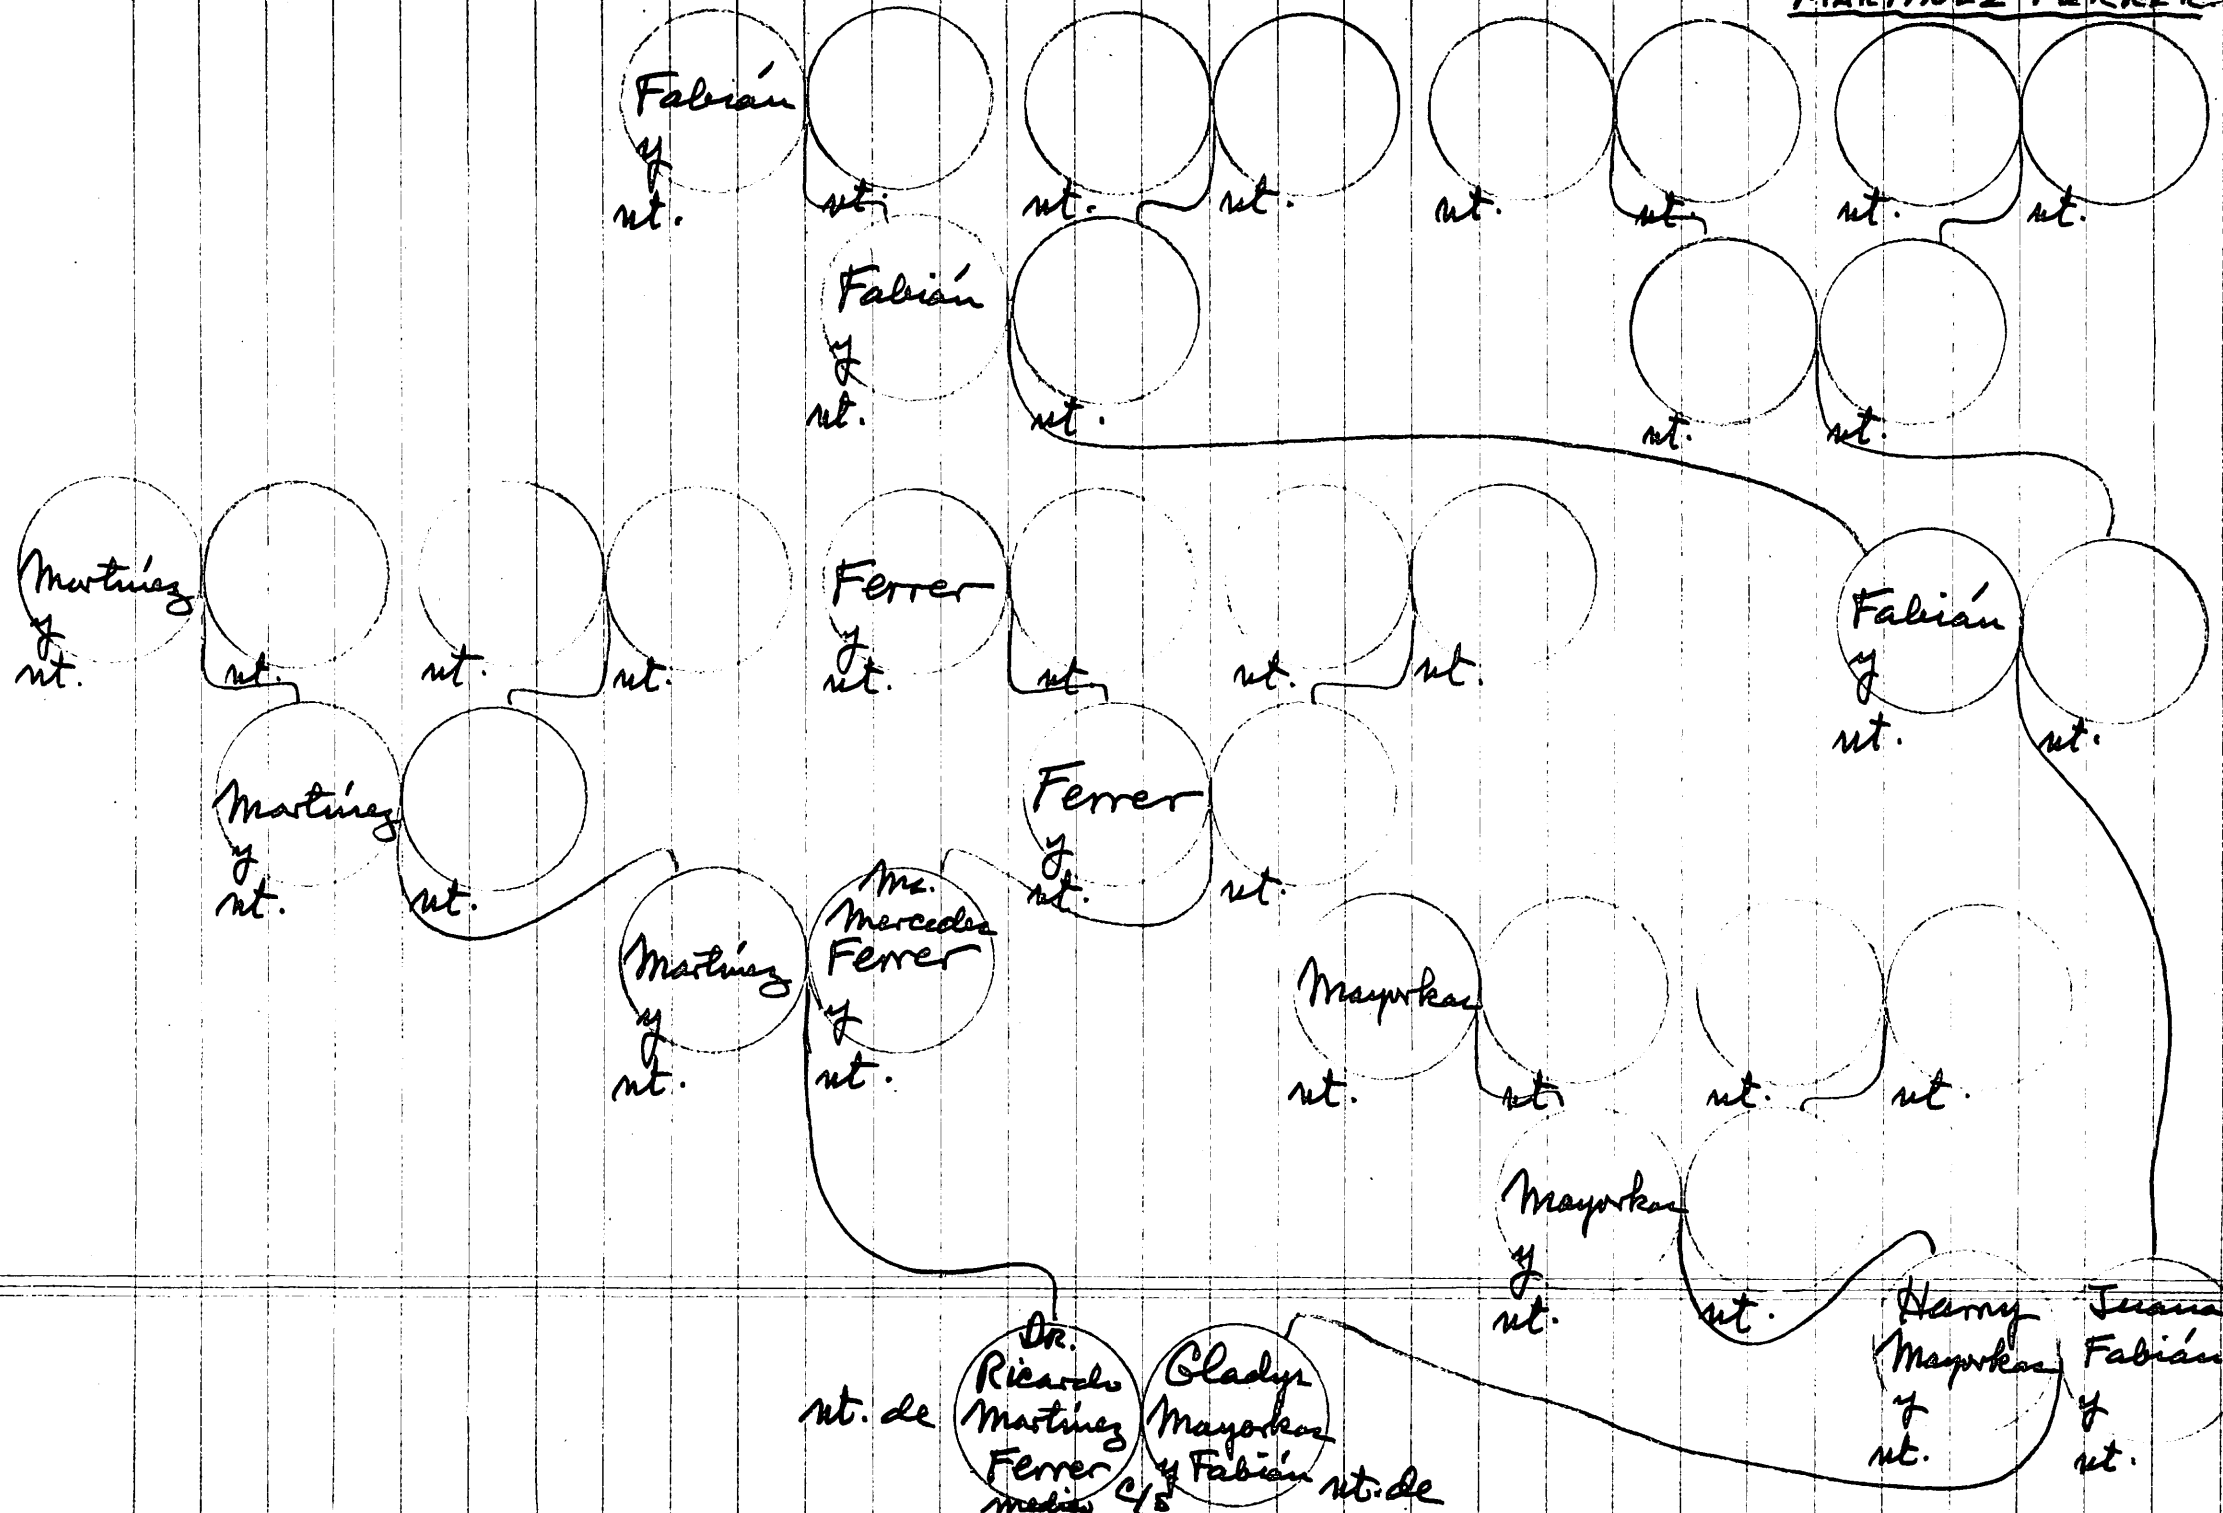 MARTINEZ FERRER
Fabián
y
nt.
nt.
nt.
nt.
nt.
nt.
nt.
nt.
Fabián
y
nt.
nt.
nt.
nt.
Martínez
y
nt.
nt.
nt.
nt.
Ferrer
y
nt.
nt.
nt.
nt.
Fabián
y
nt.
nt.
Martínez
y
nt.
nt.
Ferrer
y
nt.
nt.
Martínez
y
nt.
Ma.
Mercedes
Ferrer
y
nt.
Mayorkas
nt.
nt.
nt.
nt.
Mayorkas
y
nt.
nt.
Harry
Mayorkas
y
nt.
Juana
Fabián
y
nt.
nt. de
Dr.
Ricardo
Martínez
Ferrer
medico
c/s
Gladys
Mayorkas
y Fabián
nt. de